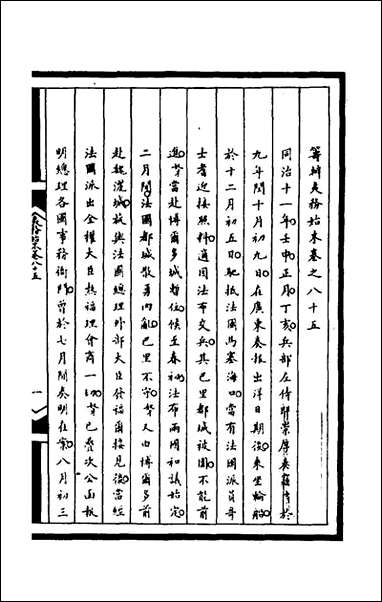 籌辦夷務始末卷之八十五
同治十一年壬申正月丁亥兵部左侍郎崇厚奏竊於
九年閏十月初九日在廣東奏報出洋日期後乘坐輪船
於十二月初五日駛抵法國馬塞海口當有法國派員哥
士耆迎接照料適因法布交兵其巴里都城被圍不能前
進當赴博爾多城暫住候至春初法布兩國和議始定
二月間法國都城散勇內亂巴里不守又由博爾多前
赴魏灑城投與法國總理外部大臣發福爾接見後當經
法國派出全權大臣熱福理會商一切業已疊次公函報
明總理各國事務衙門曾於七月間奏明在案八月初三
夷務始末卷八十五
一